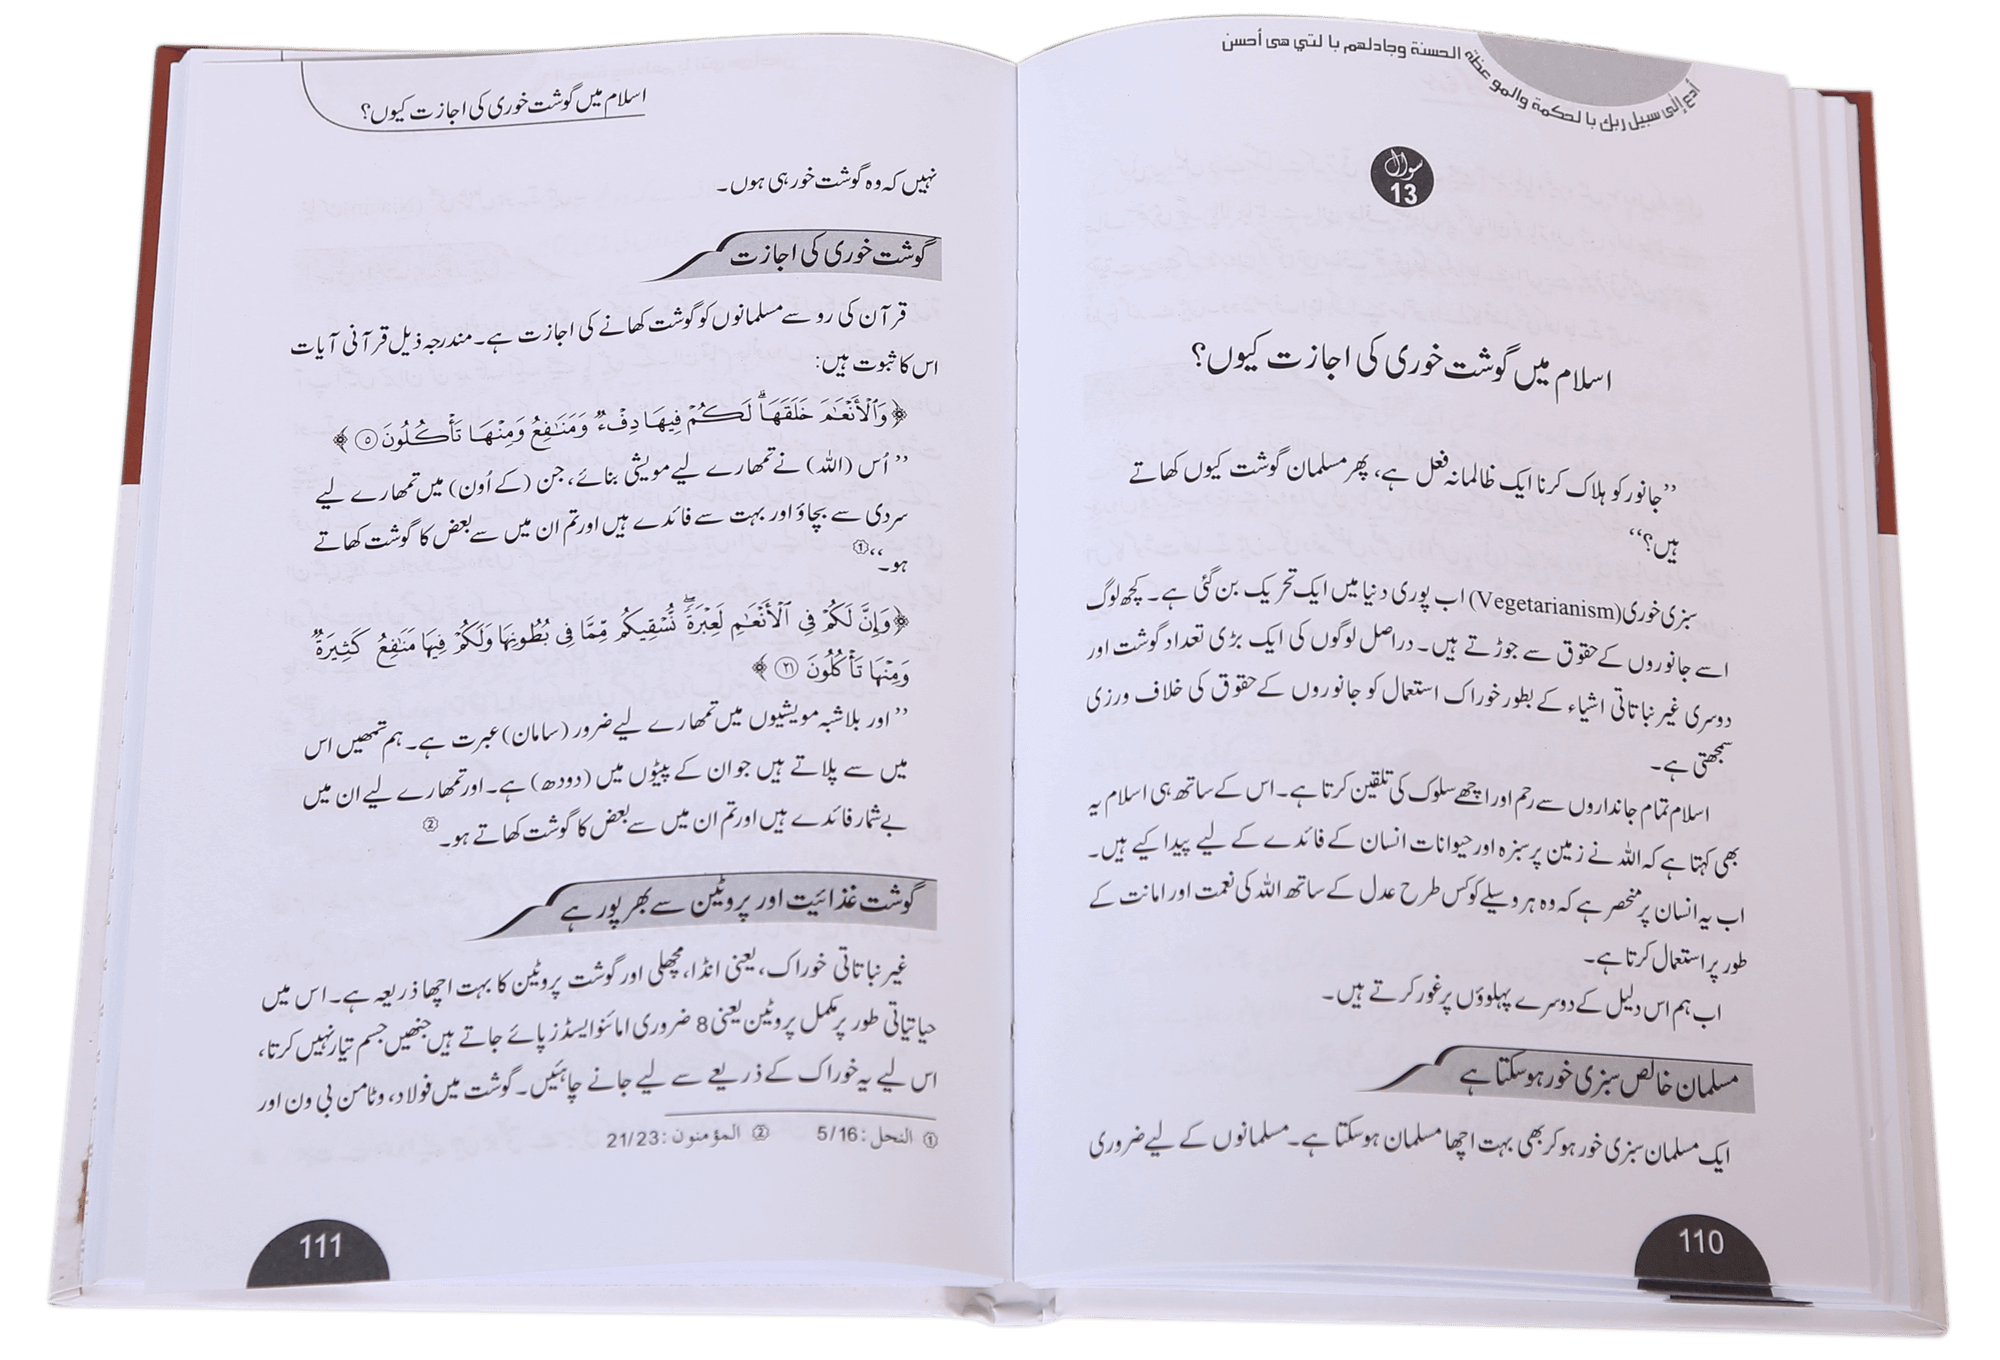 أدع إلى سبيل ربك با لحكمة والمو عظة الحسنة وجادلهم با لتي هى أحسن
سوال
13
اسلام میں گوشت خوری کی اجازت کیوں؟
”جانور کو ہلاک کرنا ایک ظالمانہ فعل ہے، پھر مسلمان گوشت کیوں کھاتے
ہیں؟“
سبزی خوری (Vegetarianism) اب پوری دنیا میں ایک تحریک بن گئی ہے۔ کچھ لوگ
اسے جانوروں کے حقوق سے جوڑتے ہیں۔ دراصل لوگوں کی ایک بڑی تعداد گوشت اور
دوسری غیر نباتاتی اشیاء کے بطور خوراک استعمال کو جانوروں کے حقوق کی خلاف ورزی
سمجھتی ہے۔
اسلام تمام جانداروں سے رحم اور اچھے سلوک کی تلقین کرتا ہے۔ اس کے ساتھ ہی اسلام یہ
بھی کہتا ہے کہ اللہ نے زمین پر سبزہ اور حیوانات انسان کے فائدے کے لیے پیدا کیے ہیں۔
اب یہ انسان پر منحصر ہے کہ وہ ہر وسیلے کو کس طرح عدل کے ساتھ اللہ کی نعمت اور امانت کے
طور پر استعمال کرتا ہے۔
اب ہم اس دلیل کے دوسرے پہلوؤں پر غور کرتے ہیں۔
مسلمان خالص سبزی خور ہوسکتا ہے
ایک مسلمان سبزی خور ہوکر بھی بہت اچھا مسلمان ہوسکتا ہے۔ مسلمانوں کے لیے ضروری
110
اسلام میں گوشت خوری کی اجازت کیوں؟
نہیں کہ وہ گوشت خور ہی ہوں۔
گوشت خوری کی اجازت
قرآن کی رو سے مسلمانوں کو گوشت کھانے کی اجازت ہے۔ مندرجہ ذیل قرآنی آیات
اس کا ثبوت ہیں:
﴿وَٱلْأَنْعَٰمَ خَلَقَهَا ۗ لَكُمْ فِيهَا دِفْءٌ وَمَنَٰفِعُ وَمِنْهَا تَأْكُلُونَ ۝٥﴾
”اُس (اللہ) نے تمھارے لیے مویشی بنائے، جن (کے اُون) میں تمھارے لیے
سردی سے بچاؤ اور بہت سے فائدے ہیں اور تم ان میں سے بعض کا گوشت کھاتے
ہو۔“①
﴿وَإِنَّ لَكُمْ فِى ٱلْأَنْعَٰمِ لَعِبْرَةً ۖ نُّسْقِيكُم مِّمَّا فِى بُطُونِهَا وَلَكُمْ فِيهَا مَنَٰفِعُ كَثِيرَةٌ
وَمِنْهَا تَأْكُلُونَ ۝٢١﴾
”اور بلاشبہ مویشیوں میں تمھارے لیے ضرور (سامان) عبرت ہے۔ ہم تمھیں اس
میں سے پلاتے ہیں جو ان کے پیٹوں میں (دودھ) ہے۔ اور تمھارے لیے ان میں
بے شمار فائدے ہیں اور تم ان میں سے بعض کا گوشت کھاتے ہو۔②
گوشت غذائیت اور پروٹین سے بھرپور ہے
غیر نباتاتی خوراک، یعنی انڈا، مچھلی اور گوشت پروٹین کا بہت اچھا ذریعہ ہے۔ اس میں
حیاتیاتی طور پر مکمل پروٹین یعنی 8 ضروری امائنو ایسڈز پائے جاتے ہیں جنھیں جسم تیار نہیں کرتا،
اس لیے یہ خوراک کے ذریعے سے لیے جانے چاہئیں۔ گوشت میں فولاد، وٹامن بی ون اور
① النحل: 5/16 ② المؤمنون: 21/23
111